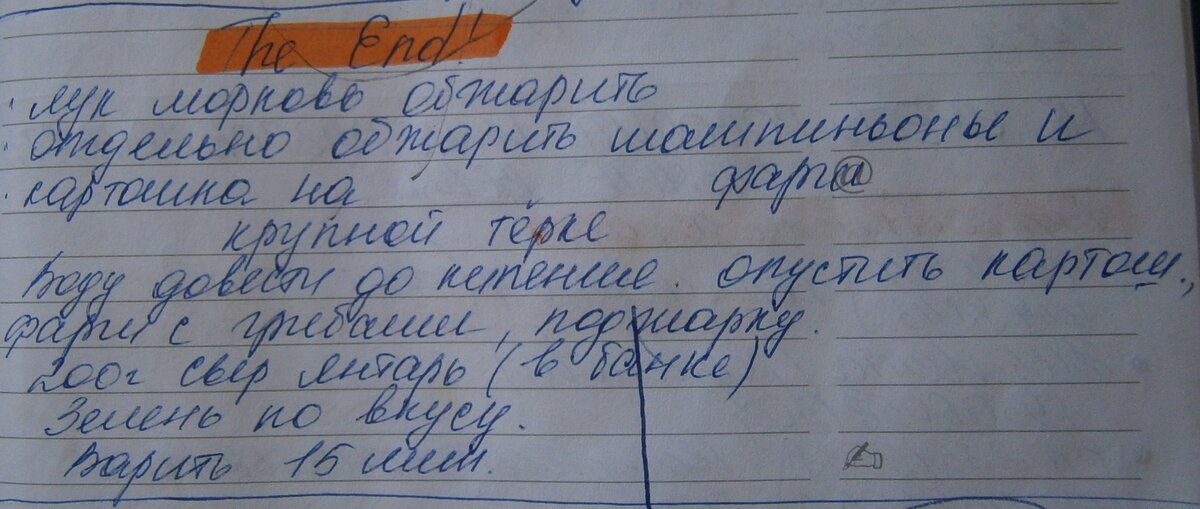 The End!
· лук морковь обжарить
· отдельно обжарить шампиньоны и
фарш
· картошка на
крупной тёрке
Воду довести до кипение. опустить картош.,
фарш с грибами, поджарку.
200г сыр янтарь (в банке)
Зелень по вкусу.
Варить 15 мин.